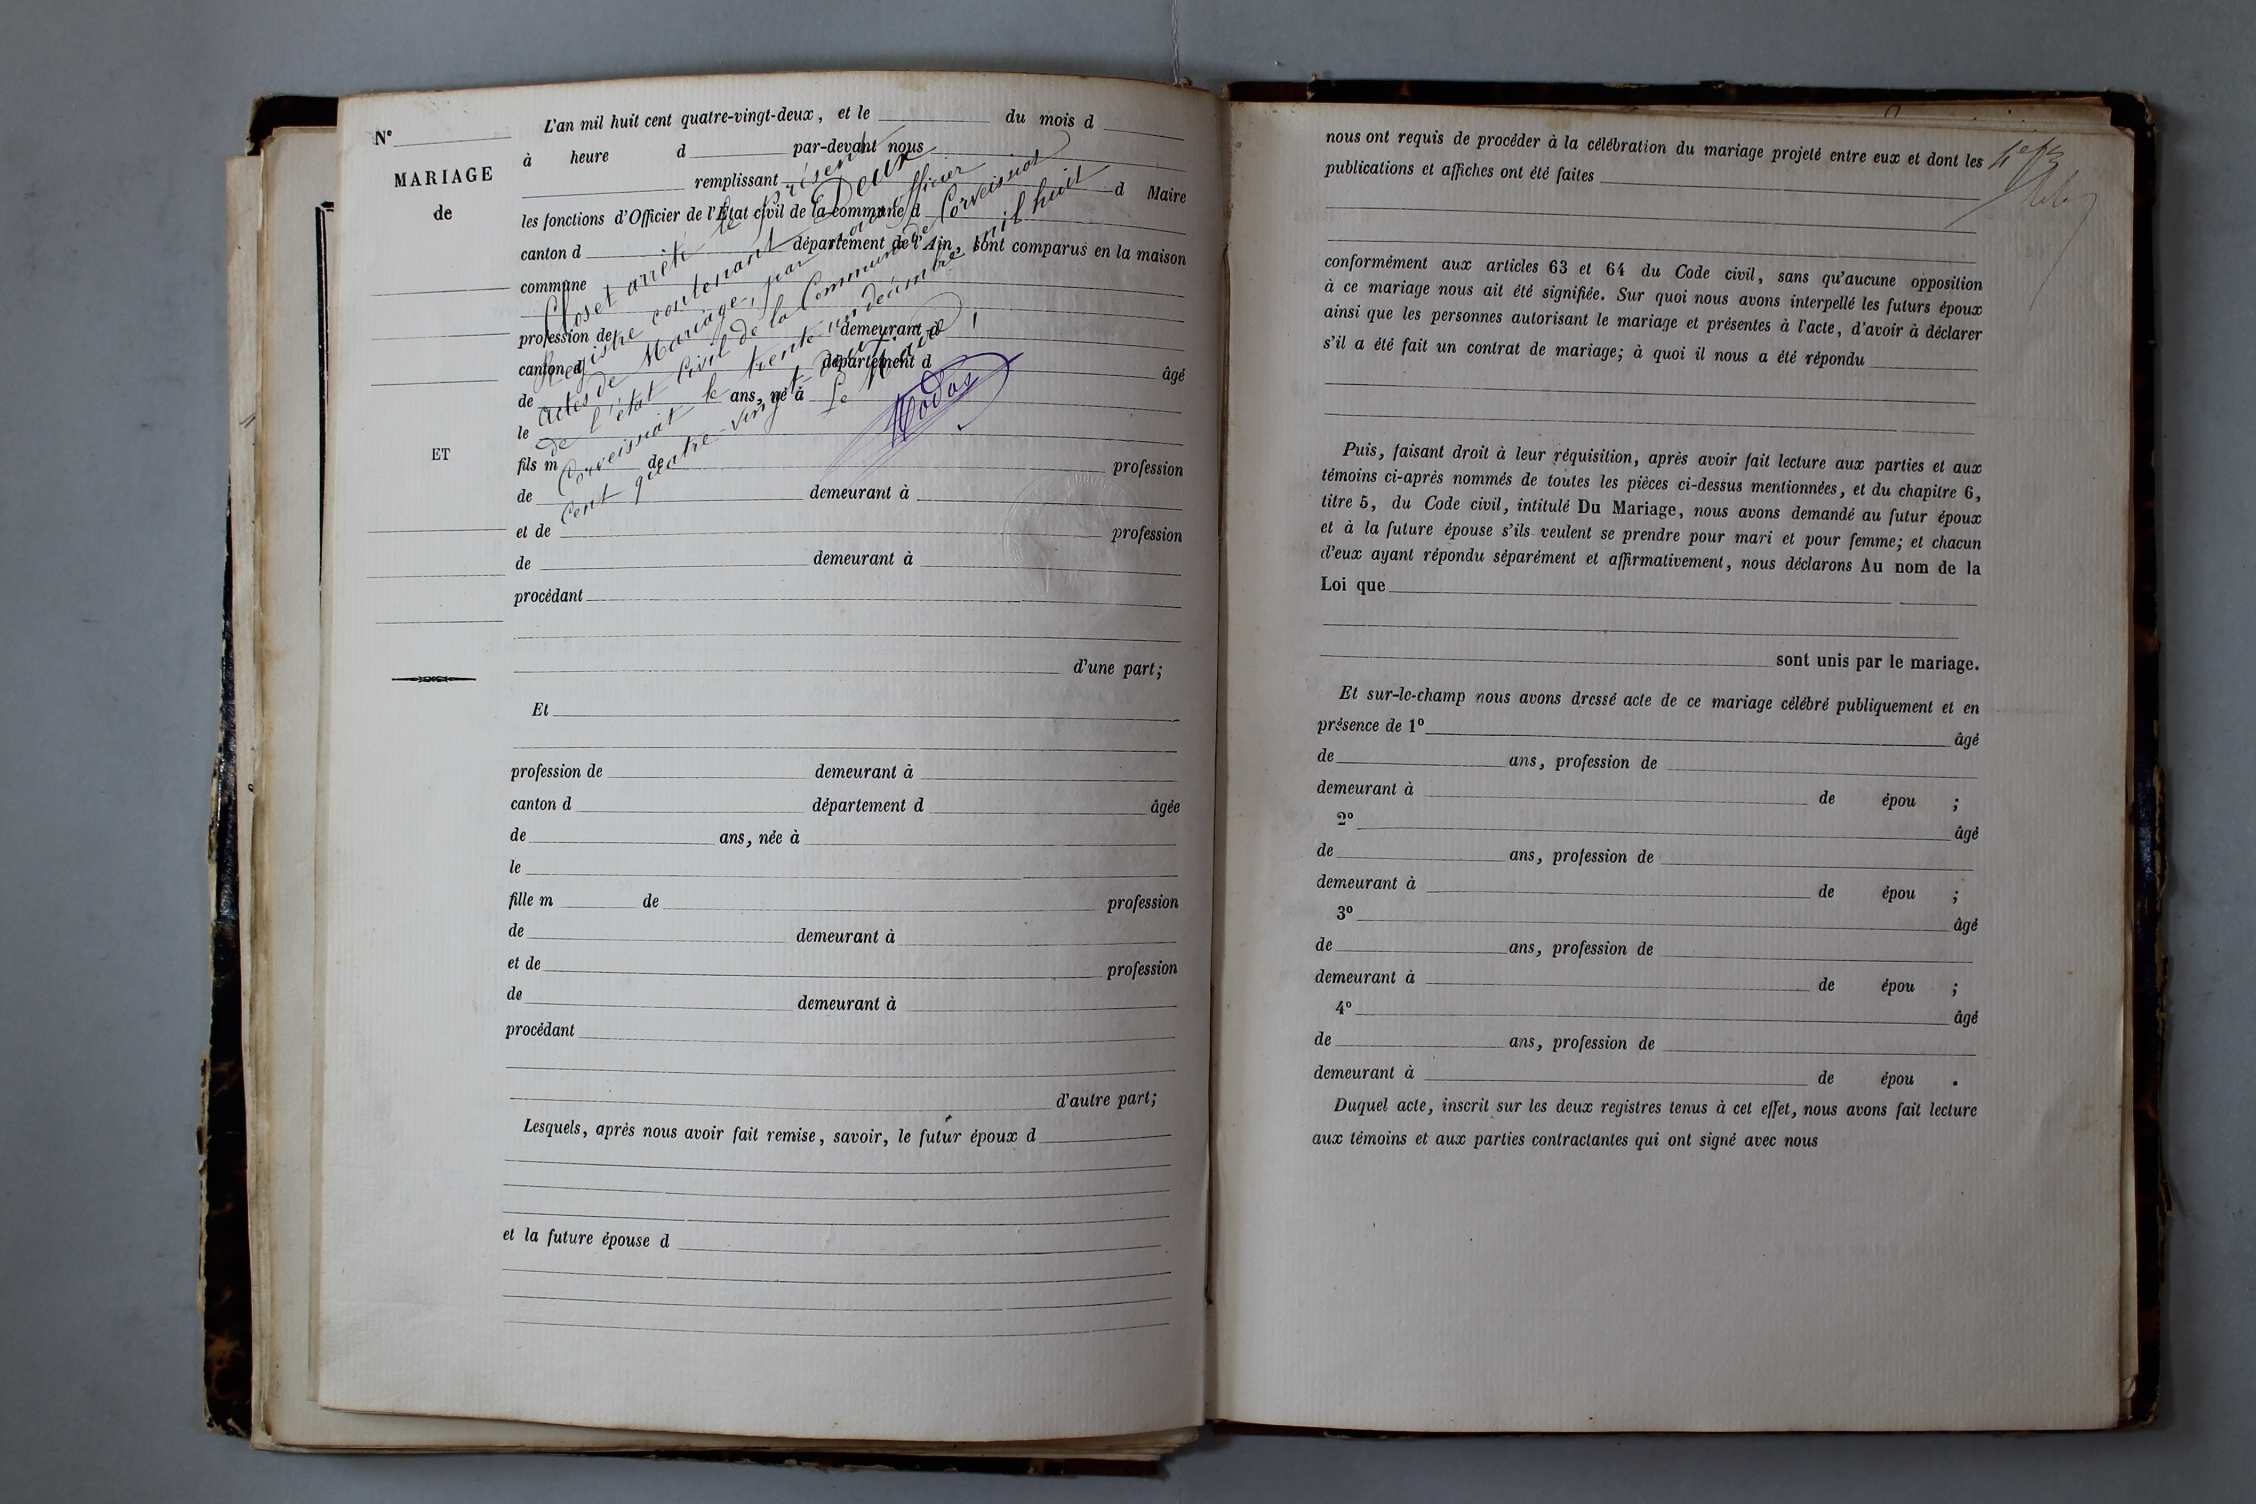 N°
MARIAGE
de
ET
L'an mil huit cent quatre-vingt-deux, et le du mois d
à heure d par-devant nous
remplissant
d Maire
les fonctions d'Officier de l'État civil de la commune d
canton d département de l'Ain, sont comparus en la maison
commune
profession de demeurant à
canton d département d âgé
de ans, né à
le
fils m de profession
de demeurant à
et de profession
de demeurant à
procédant
d'une part;
Clos et arrêté le présent
Registre contenant Deux
actes de Mariage, par nous officier
de l'état civil de la Commune de Corveissiat
Corveissiat le trente un décembre mil huit
cent quatre-vingt deux.
Le Maire
Et
profession de demeurant à
canton d département d âgée
de ans, née à
le
fille m de profession
de demeurant à
et de profession
de demeurant à
procédant
d'autre part;
Lesquels, après nous avoir fait remise, savoir, le futur époux d
et la future épouse d
nous ont requis de procéder à la célébration du mariage projeté entre eux et dont les
publications et affiches ont été faites
conformément aux articles 63 et 64 du Code civil, sans qu'aucune opposition
à ce mariage nous ait été signifiée. Sur quoi nous avons interpellé les futurs époux
ainsi que les personnes autorisant le mariage et présentes à l'acte, d'avoir à déclarer
s'il a été fait un contrat de mariage; à quoi il nous a été répondu
Puis, faisant droit à leur réquisition, après avoir fait lecture aux parties et aux
témoins ci-après nommés de toutes les pièces ci-dessus mentionnées, et du chapitre 6,
titre 5, du Code civil, intitulé Du Mariage, nous avons demandé au futur époux
et à la future épouse s'ils veulent se prendre pour mari et pour femme; et chacun
d'eux ayant répondu séparément et affirmativement, nous déclarons Au nom de la
Loi que
sont unis par le mariage.
Et sur-le-champ nous avons dressé acte de ce mariage célébré publiquement et en
présence de 1° âgé
de ans, profession de
demeurant à de épou ;
2° âgé
de ans, profession de
demeurant à de épou ;
3° âgé
de ans, profession de
demeurant à de épou ;
4° âgé
de ans, profession de
demeurant à de épou .
Duquel acte, inscrit sur les deux registres tenus à cet effet, nous avons fait lecture
aux témoins et aux parties contractantes qui ont signé avec nous